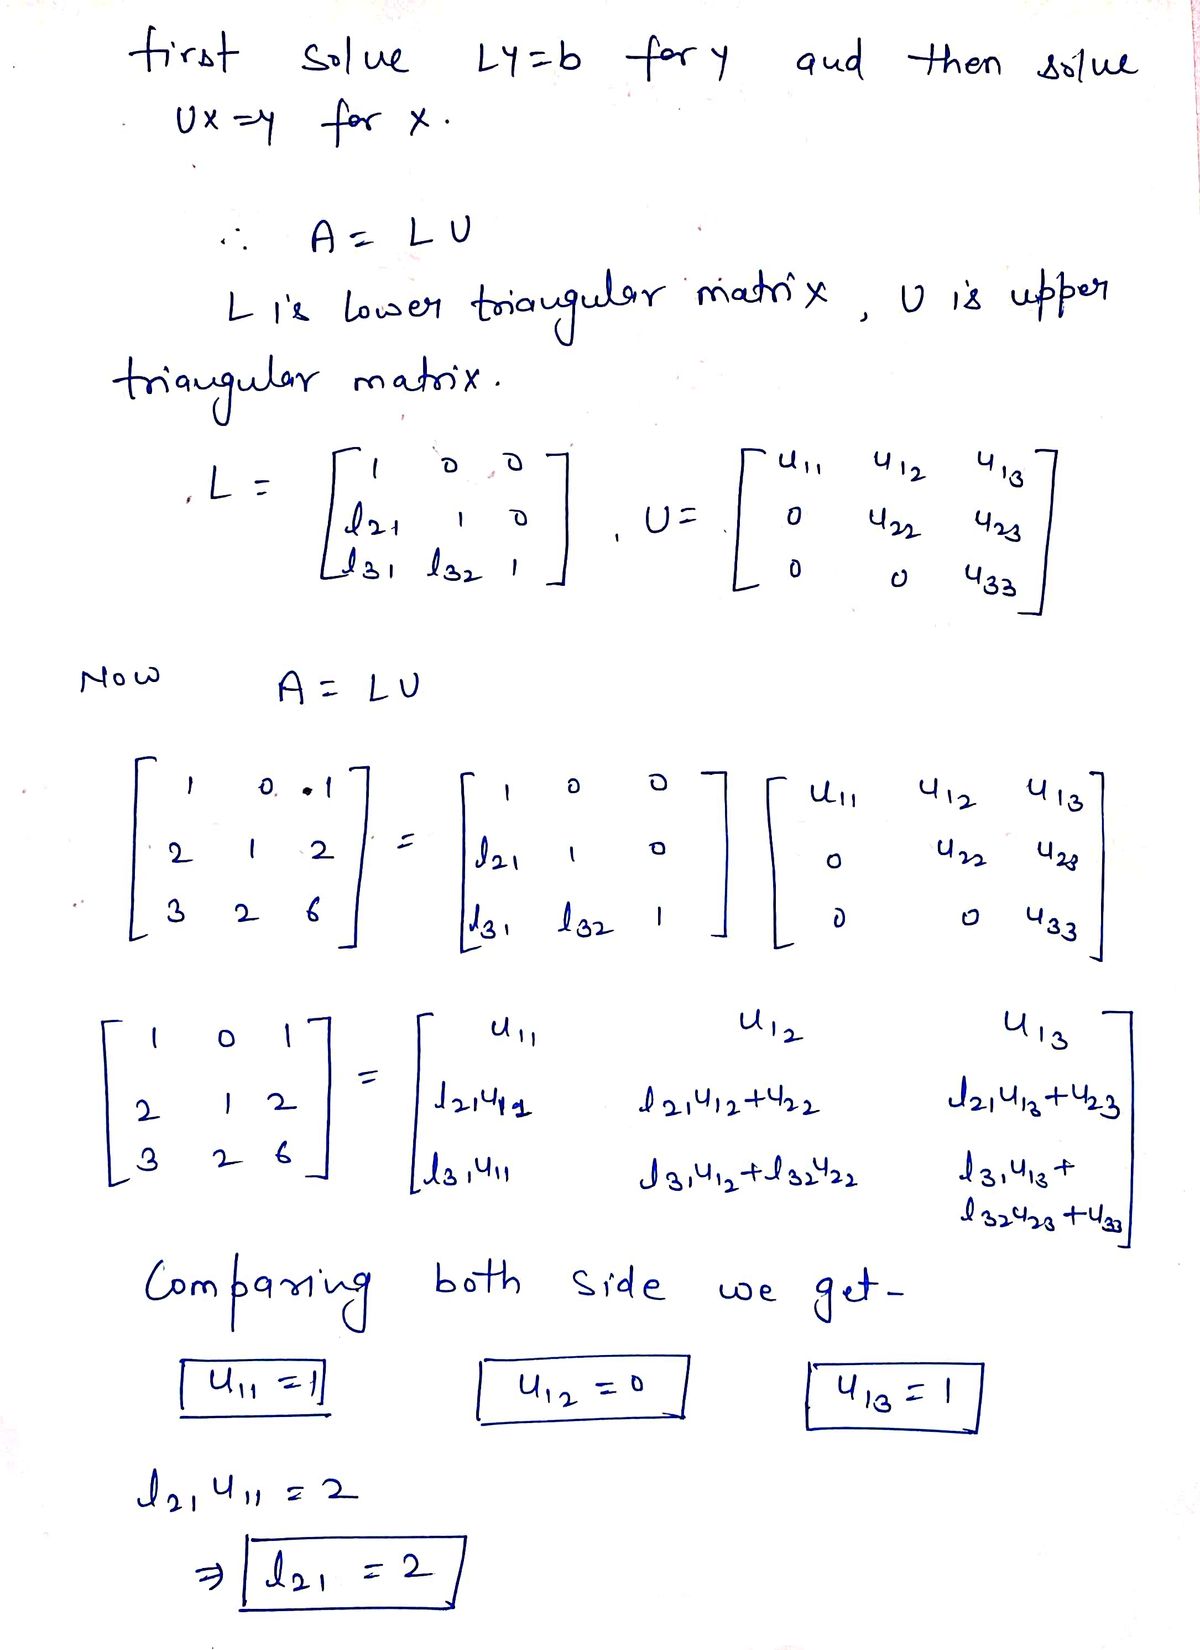 first solve LY=b for y and then solve
UX=y for x.
∴ A = LU
L is lower triangular matrix, U is upper
triangular matrix.
L = [ 1 0 0 ; l21 1 0 ; l31 l32 1 ], U = [ u11 u12 u13 ; 0 u22 u23 ; 0 0 u33 ]
Now A = LU
[ 1 0 1 ; 2 1 2 ; 3 2 6 ] = [ 1 0 0 ; l21 1 0 ; l31 l32 1 ] [ u11 u12 u13 ; 0 u22 u23 ; 0 0 u33 ]
[ 1 0 1 ; 2 1 2 ; 3 2 6 ] = [ u11 u12 u13 ; l21u11 l21u12+u22 l21u13+u23 ; l31u11 l31u12+l32u22 l31u13+l32u23+u33 ]
Comparing both side we get-
u11 = 1 u12 = 0 u13 = 1
l21 u11 = 2
⇒ l21 = 2